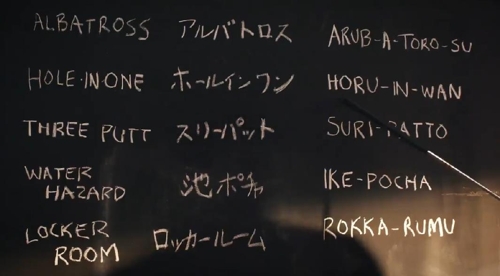 ALBATROSS アルバトロス ARUB-A-TORO-SU
HOLE-IN-ONE ホールインワン HORU-IN-WAN
THREE PUTT スリーパット SURI-PATTO
WATER HAZARD 池ポチャ IKE-POCHA
LOCKER ROOM ロッカールーム ROKKA-RUMU